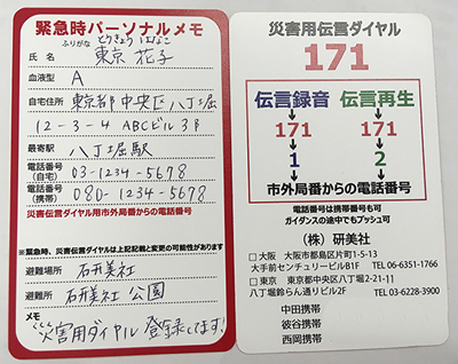 緊急時パーソナルメモ
ふりがな とうきょう はなこ
氏名 東京 花子
血液型 A
自宅住所 東京都中央区八丁堀
12-3-4 ABCビル3F
最寄駅 八丁堀駅
電話番号(自宅) 03-1234-5678
電話番号(携帯) 080-1234-5678
災害伝言ダイヤル用市外局番からの電話番号
※緊急時、災害伝言ダイヤルは上記記載と変更の可能性があります
避難場所 研美社
避難所 研美社 公園
メモ
災害用ダイヤル 登録してます!
災害用伝言ダイヤル
171
伝言録音 伝言再生
171 171
1 2
市外局番からの電話番号
電話番号は携帯番号も可
ガイダンスの途中でもプッシュ可
(株)研美社
□大阪 大阪市都島区片町1-5-13
大手前センチュリービルB1F TEL 06-6351-1766
□東京 東京都中央区八丁堀2-21-11
八丁堀鈴らん通りビル2F TEL 03-6228-3900
中田携帯
彼谷携帯
西岡携帯